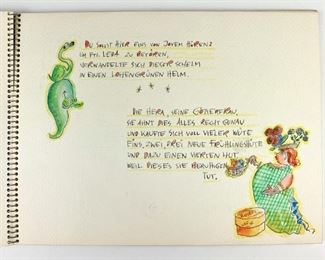 DU SOLLST HIER EINS VON JOVEM HÖREN:
UM FRL. LEDA ZU BETÖREN,
VERWANDELTE SICH DIESER SCHELM
IN EINEN LOHENGRÜNEN HELM.
* * *
DIE HERA, SEINE GÖTTERFRAU,
SIE AHNT DIES ALLES RECHT GENAU
UND KAUFTE SICH VOLL VIELER WÜTE
EINS, ZWEI, DREI NEUE FRÜHLINGSHÜTE
UND DANN EINEN VIERTEN HUT,
WEIL DIESES SIE BERUHIGEN
TUT.